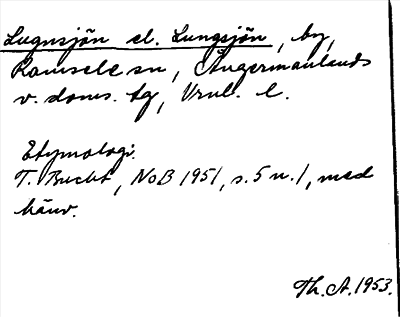 Lugnsjön el. Lungsjön, by,
Ramsele sn, Ångermanlands
v. doms. tg, Vnl. l.
Etymologi.
T. Bucht, NoB 1951, s. 5 n. 1, med
hänv.
Th. A. 1953.